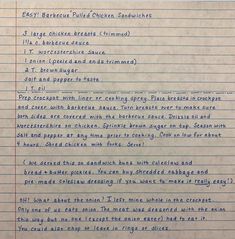 EASY! Barbecue "Pulled" Chicken Sandwiches
3 large chicken breasts (trimmed)
1 1/2 c. barbecue sauce
1 T. worcestershire sauce
1 onion (peeled and ends trimmed)
2 T. brown sugar
Salt and pepper to taste
1 T. oil
Prep crockpot with liner or cooking spray. Place breasts in crockpot
and cover with barbecue sauce. Turn breasts over to make sure
both sides are covered with the barbecue sauce. Drizzle oil and
worcestershire on chicken. Sprinkle brown sugar on top. Season with
salt and pepper at any time prior to cooking. Cook on low for about
4 hours. Shred chicken with forks. Serve!
(We served this on sandwich buns with coleslaw and
bread + butter pickles. You can buy shredded cabbage and
pre-made coleslaw dressing if you want to make it really easy!)
OH! What about the onion? I left mine whole in the crockpot.
Only one of us eats onion. The meat was seasoned with the onion
this way but no one (except the onion eater) had to eat it.
You could also chop or leave in rings or slices.